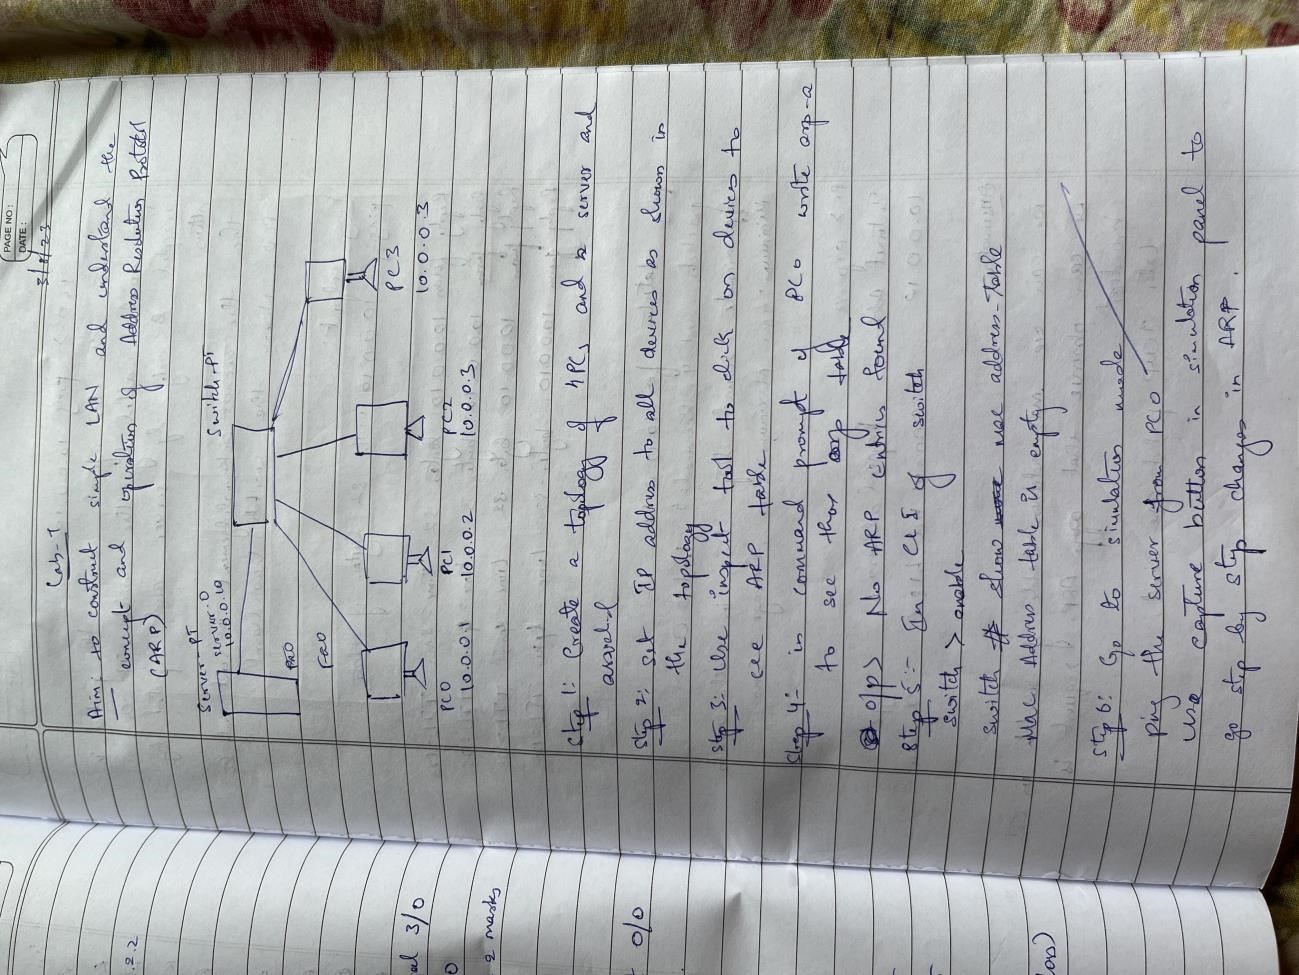 PAGE NO:
DATE:
3/8/23
Lab-7
Aim: to construct simple LAN and understand the
concept and operation of Address Resolution Protocol
(ARP)
Server-PT
server.0
10.0.0.10
Switch-PT
Fa0
Fa0
PC0
10.0.0.1
PC1
10.0.0.2
PC2
10.0.0.3
PC3
10.0.0.3
Step 1: Create a topology of 4PCs and a server and
Step 2: Set IP address to all devices as shown in
the topology
Step 3: Use inspect tool to click on devices to
see ARP table
Step 4- in command prompt of PC0 write arp-a
to see that arp table
o/p> No ARP Entries found
Step 5:- In CLI of switch
Switch > enable
Switch # show mac address-table
Mac Address table is empty.
Step 6: Go to simulation mode
ping the server from PC0
Use capture button in simulation panel to
go step by step changes in ARP.
.2.2
al 3/0
0
2 marks
0/0